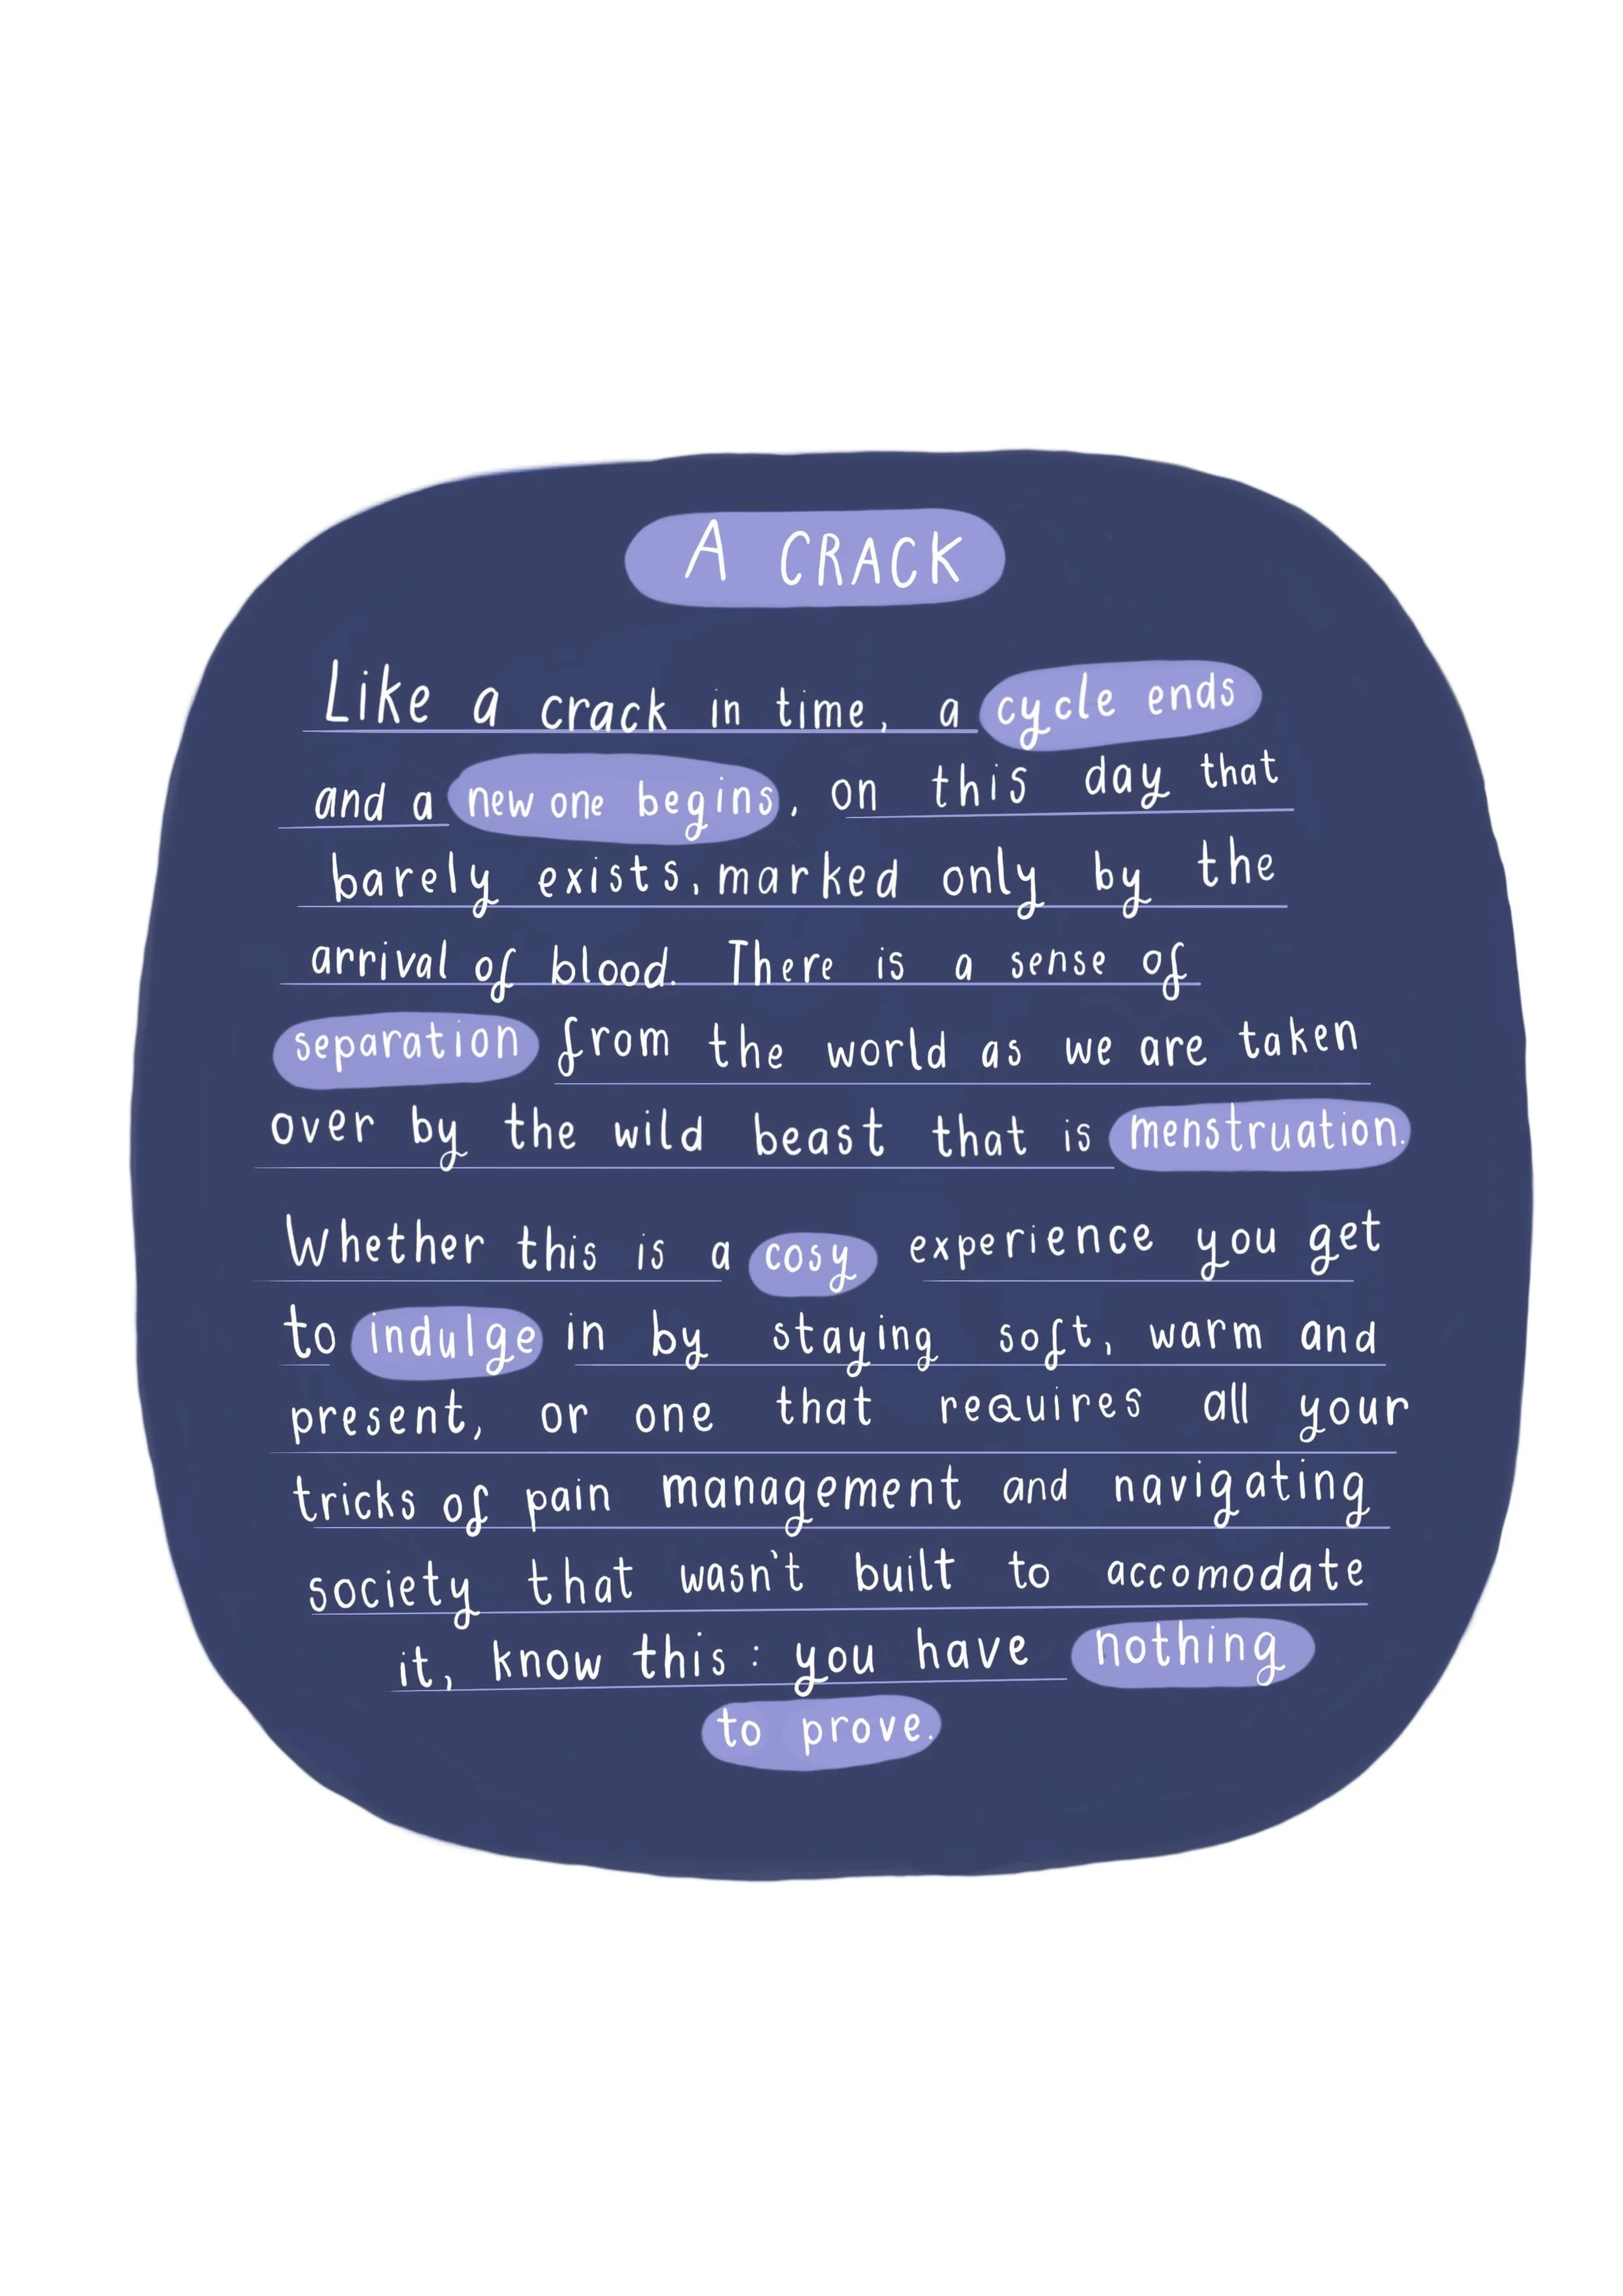 A CRACK
Like a crack in time, a cycle ends
and a new one begins, on this day that
barely exists, marked only by the
arrival of blood. There is a sense of
separation from the world as we are taken
over by the wild beast that is menstruation.
Whether this is a cosy experience you get
to indulge in by staying soft, warm and
present, or one that requires all your
tricks of pain management and navigating
society that wasn't built to accomodate
it, know this: you have nothing
to prove.